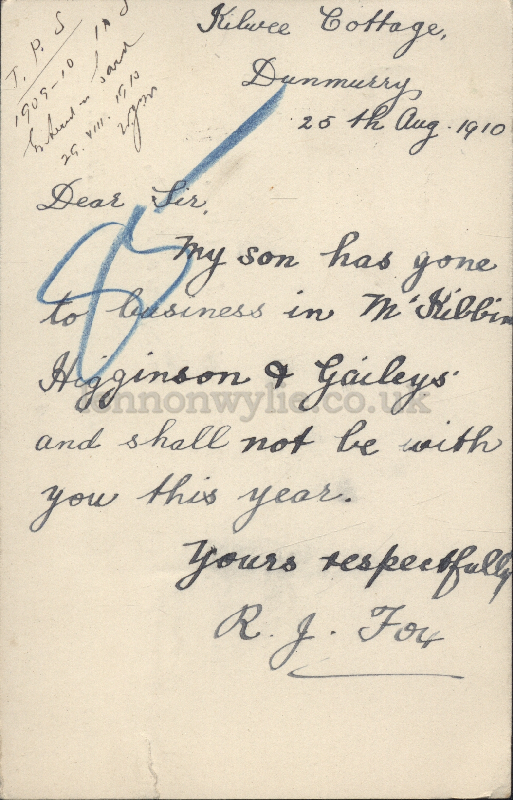 J. P. S
1909-10
29. VIII. 1910
Kilwee Cottage,
Dunmurry
25th Aug. 1910
Dear Sir,
My son has gone
to business in McKibbin
Higginson & Gaileys
lennonwylie.co.uk
and shall not be with
you this year.
Yours respectfully
R. J. Fox